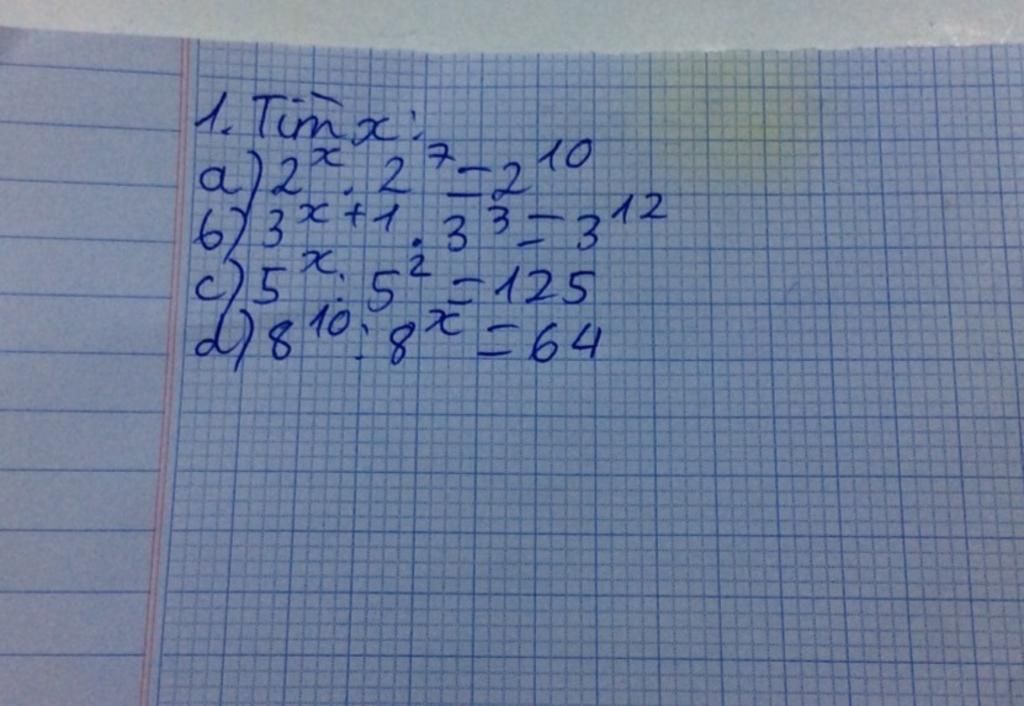 1. Tìm x:
a) 2^x . 2^7 = 2^10
b) 3^x+1 . 3^3 = 3^12
c) 5^x : 5^2 = 125
d) 8^10 : 8^x = 64